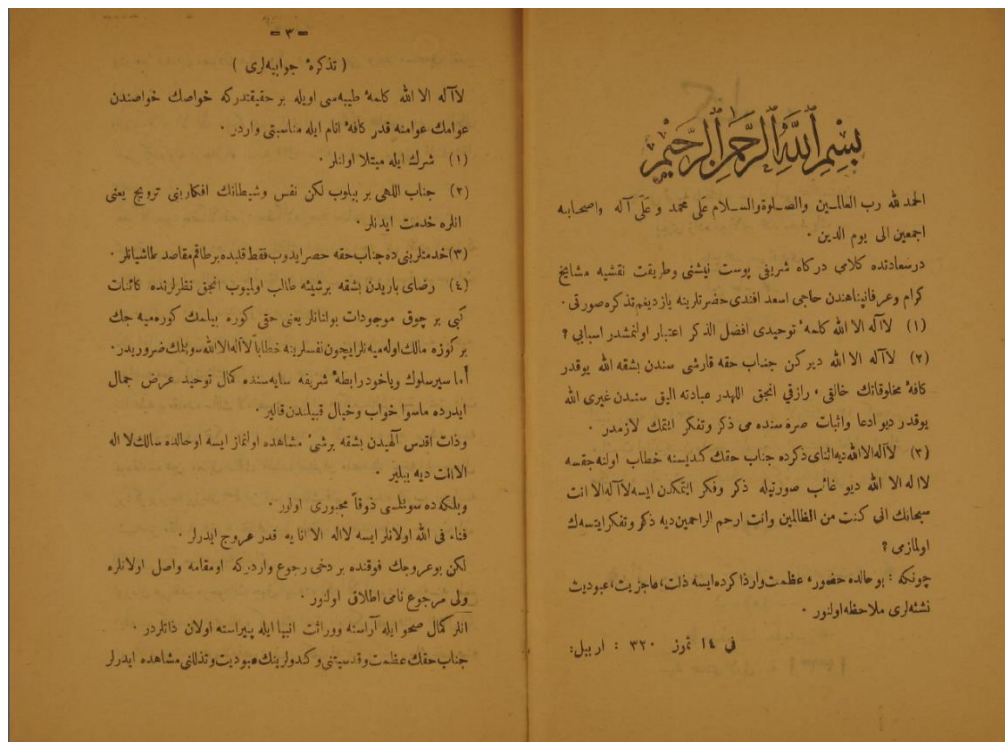 بسم الله الرحمن الرحيم
الحمد لله رب العالمين والصلوة والسلام على محمد و على آله واصحابه
اجمعين الى يوم الدين ·
درسعادتده كلامي دركاه شريفى پوست نيشنى وطريقت نقشيه مشايخ
كرام وعرفانپناهندن حاجى اسعد افندى حضرتلرينه يازديغم تذكره صورتى ·
(١) لاآله الا الله كلمهٔ توحيدى افضل الذكر اعتبار اولنمشدر اسبابى ؟
(٢) لاآله الا الله ديركن جناب حقه قارشى سندن بشقه الله يوقدر
كافهٔ مخلوقاتك خالقى ، رازقي انجق اللهدر عبادته اليق سندن غيرى الله
يوقدر ديو ادعا واثبات صره سنده مى ذكر وتفكر ايتمك لازمدر ·
(٣) لاآله الاالله ديه اثناى ذكرده جناب حقك كنديسنه خطاب اولنه جقسه
لااله الا الله ديو غائب صورتيله ذكر وفكر ايتمكدن ايسه لاآله الا انت
سبحانك انى كنت من الظالمين وانت ارحم الراحمين ديه ذكر وتفكر ايتسه ك
اولمازمى ؟
چونكه : بوحالده حضور، عظمت وارذاكرده ايسه ذلت، عاجزيت، عبوديت
نشئه لرى ملاحظه اولنور ·
فى ١٤ تموز ٣٢٠ : اربيل:
— ٣ —
( تذكرهٔ جوابيه لرى )
لاآله الا الله كلمهٔ طيبه سى اويله بر حقيقتدركه خواصك خواصندن
عوامك عوامنه قدر كافهٔ انام ايله مناسبتى واردر ·
(١) شرك ايله مبتلا اولانلر ·
(٢) جناب اللهى بر بيلوب لكن نفس وشيطانك افكارينى ترويج يعنى
انلره خدمت ايدنلر ·
(٣) خدمتلرينى ده جناب حقه حصر ايدوب فقط قلبده برطاقم مقاصد طاشيانلر ·
(٤) رضاى باريدن بشقه برشيئه طالب اولميوب انجق نظرلرنده كائنات
كبى بر چوق موجودات بولنانلر يعنى حتى كوره بيلمك كوره ميه جك
بر كوزه مالك اوله ميه نلرايچون نفسلرينه خطاباً لاآله الاالله سويلمك ضروريدر ·
أما سيرسلوك وياخود رابطهٔ شريفه سايه سنده كمال توحيد عرض جمال
ايدرده ماسوا خواب وخيال قبيلندن قالير ·
وذات اقدس آلهيدن بشقه برشئ مشاهده اولنماز ايسه اوحالده سالك لا اله
الاانت ديه بيلير ·
وبلكه ده سويلمسى ذوقاً مجبورى اولور ·
فناء فى الله اولانلر ايسه لااله الا انا يه قدر عروج ايدرلر ·
لكن بوعروجك فوقنده بر دخى رجوع واردركه اومقامه واصل اولانلره
ولى مرجوع نامى اطلاق اولنور ·
انلر كمال صحو ايله آراسته ووراثت انبيا ايله پيراسته اولان ذاتلردر ·
جناب حقك عظمت وقدسيتنى وكندولرينك عبوديت وتذللنى مشاهده ايدرلر